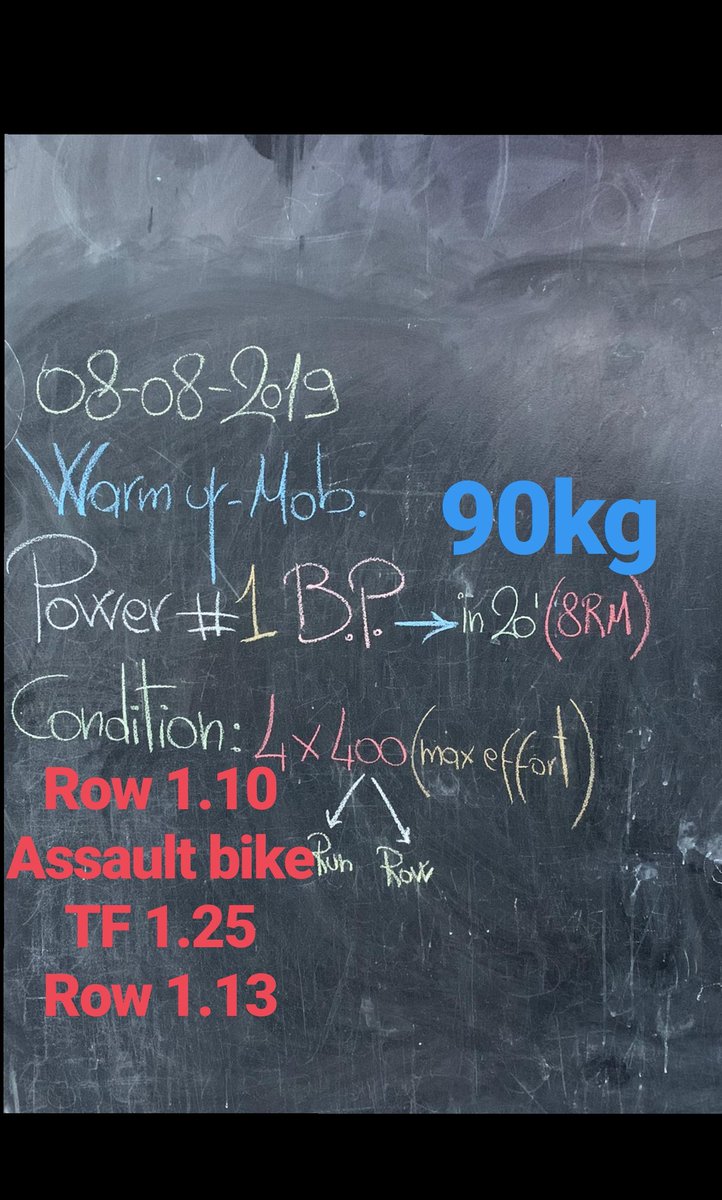 08-08-2019
Warm up-Mob.
90kg
Power #1 B.P. → in 20' (8RM)
Condition: 4 x 400 (max effort)
Run Row
Row 1.10
Assault bike
TF 1.25
Row 1.13